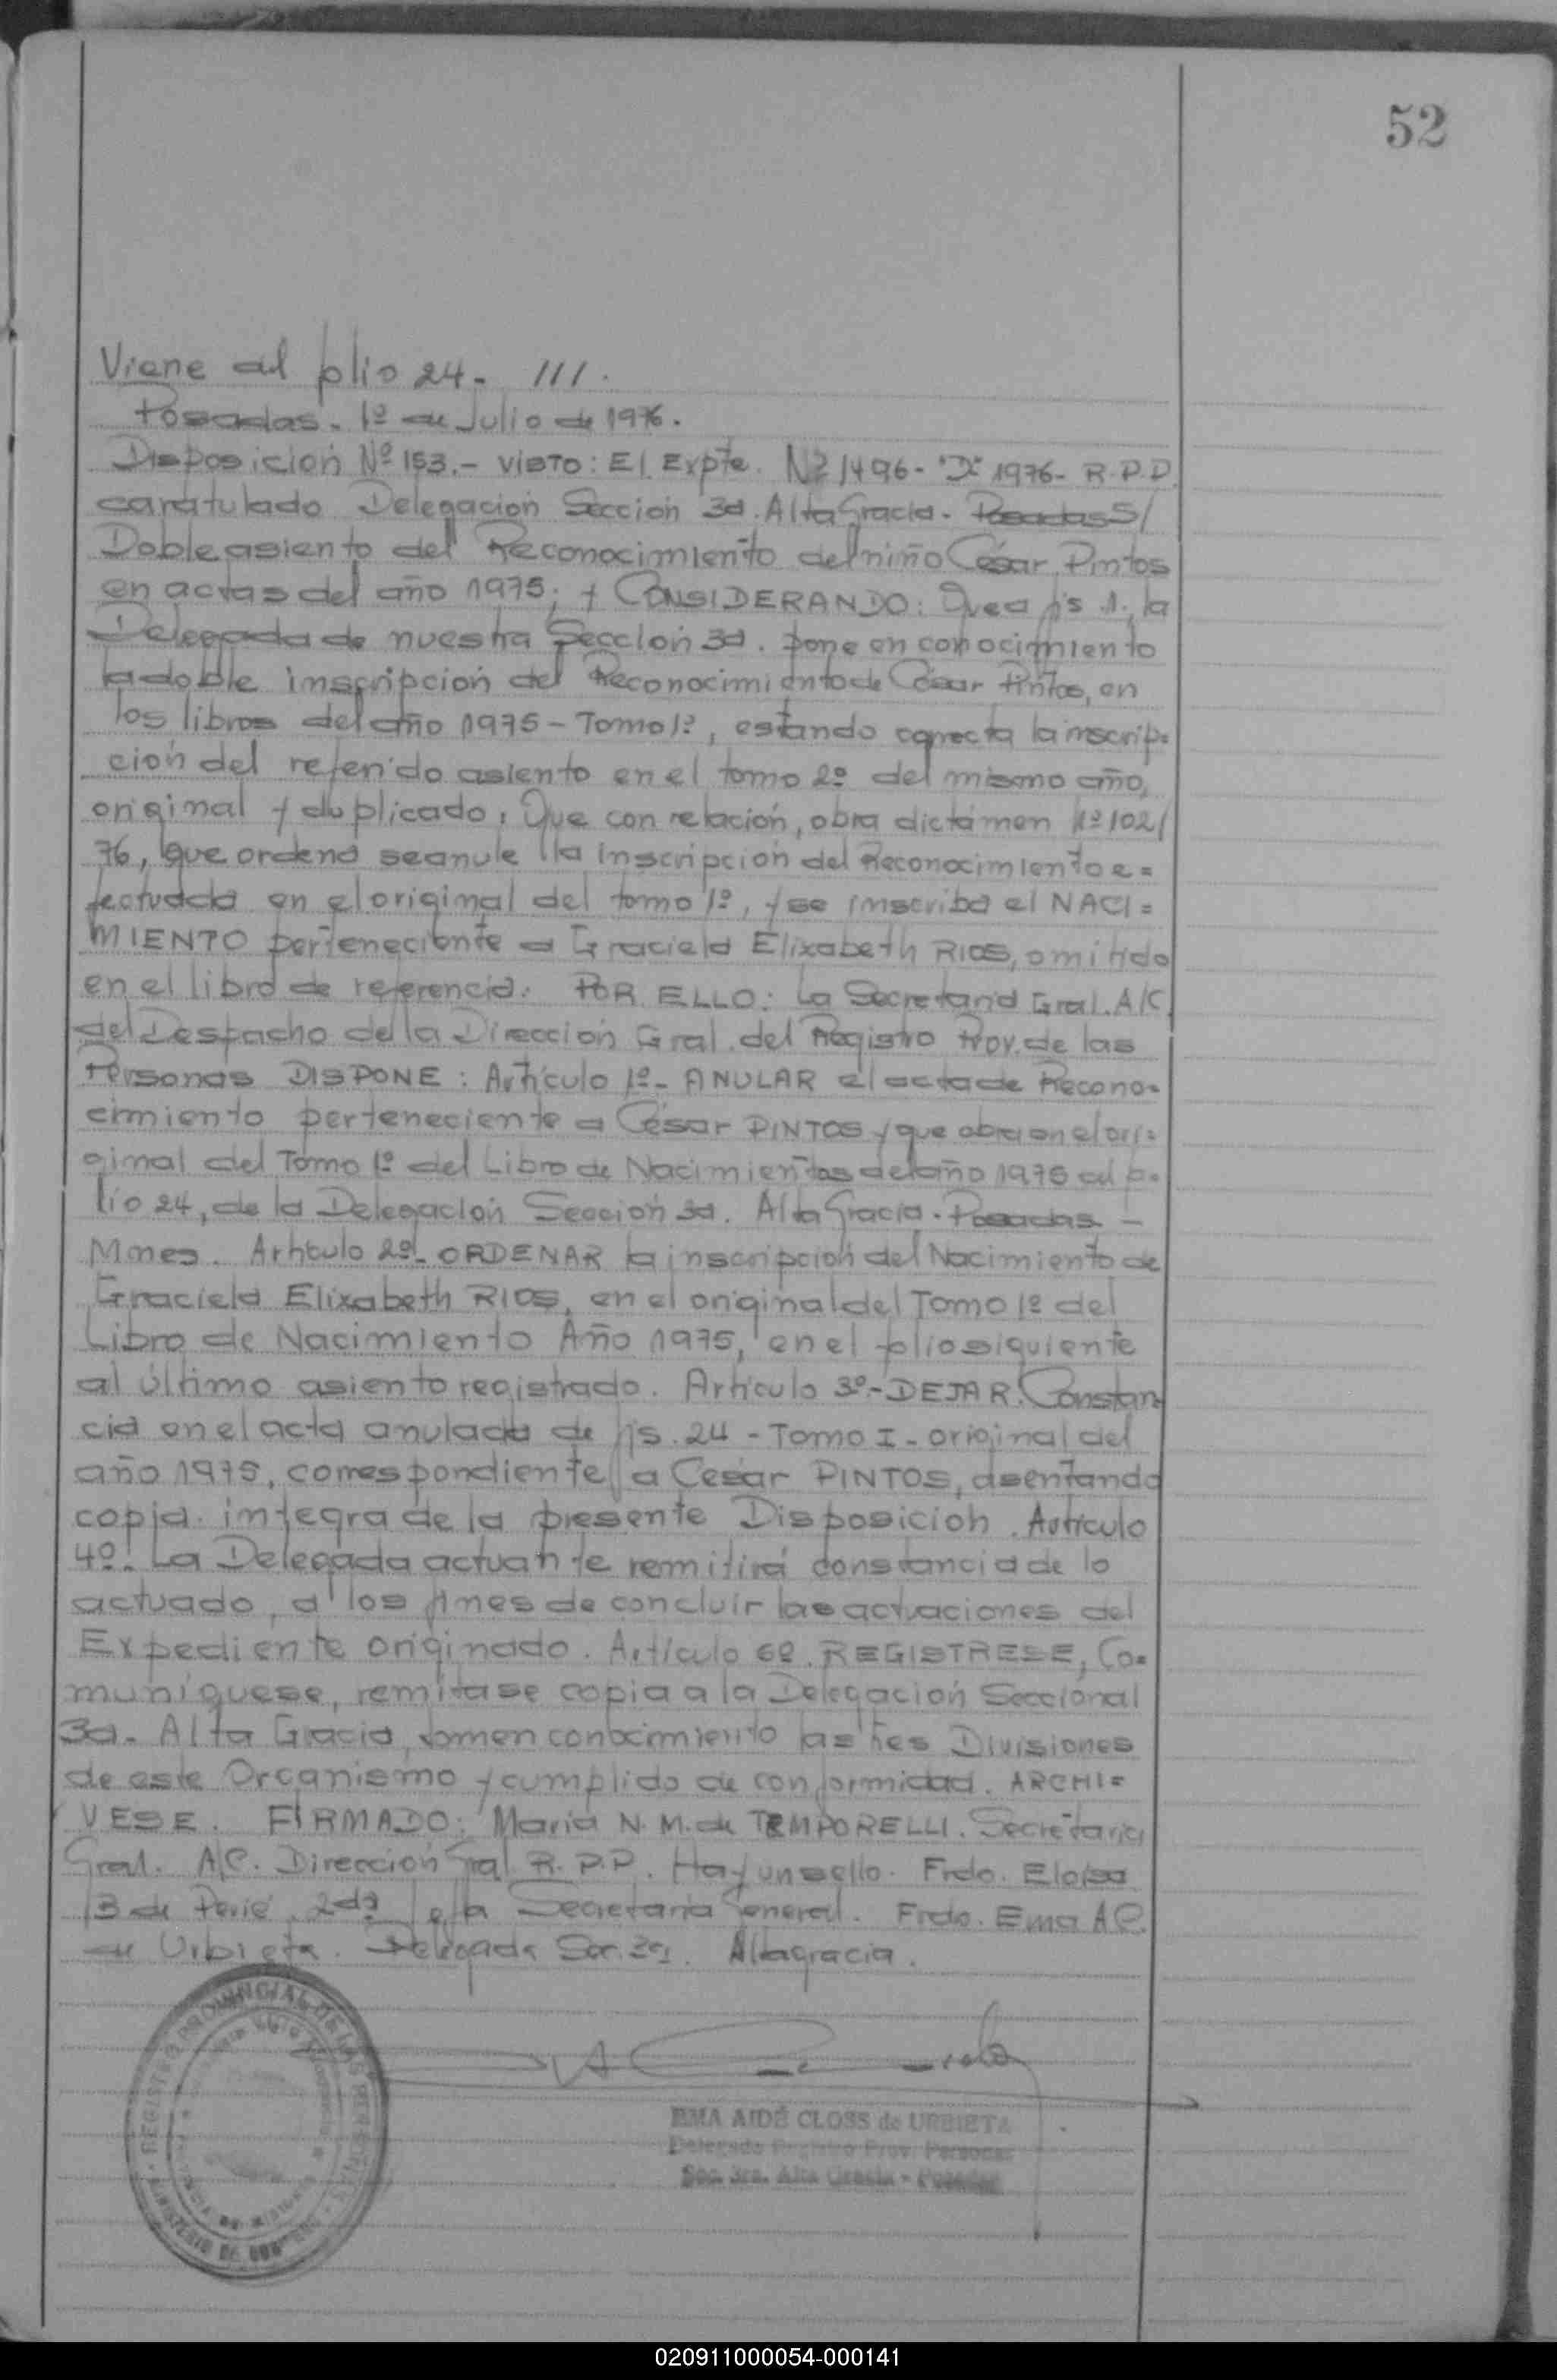 52
Viene al folio 24- ///.
Posadas. 1º de Julio de 1976.
Disposición Nº 153.- VISTO: El Expte. Nº 1496-"D" 1976- R.P.P.
caratulado Delegación Sección 3a. Alta Gracia. Posadas S/
Doble asiento del Reconocimiento del niño César Pintos
en actas del año 1975; y CONSIDERANDO: Que a fs 1., la
Delegada de nuestra Sección 3a. pone en conocimiento
la doble inscripción del Reconocimiento de César Pintos, en
los libros del año 1975- Tomo 1º, estando correcta la inscrip=
ción del referido asiento en el tomo 2º del mismo año,
original y duplicado; Que con relación, obra dictámen Nº 102/
76, que ordena se anule la inscripción del Reconocimiento e=
fectuada en el original del tomo 1º, y se inscriba el NACI=
MIENTO perteneciente a Graciela Elizabeth RIOS, omitido
en el libro de referencia. POR ELLO: La Secretaria Gral. A/C.
del Despacho de la Dirección Gral. del Registro Prov. de las
Personas DISPONE: Artículo 1º- ANULAR el acta de Recono=
cimiento perteneciente a César PINTOS y que obra en el ori=
ginal del Tomo 1º del Libro de Nacimientos del año 1975 al fo=
lio 24, de la Delegación Sección 3a. Alta Gracia. Posadas -
Mnes. Artículo 2º- ORDENAR la inscripción del Nacimiento de
Graciela Elizabeth RIOS, en el original del Tomo 1º del
Libro de Nacimiento Año 1975, en el folio siguiente
al último asiento registrado. Artículo 3º.- DEJAR Constan=
cia en el acta anulada de fjs. 24 - Tomo I - original del
año 1975, correspondiente a César PINTOS, asentando
copia íntegra de la presente Disposición. Artículo
4º. La Delegada actuante remitirá constancia de lo
actuado, a los fines de concluir las actuaciones del
Expediente originado. Artículo 6º. REGISTRESE, Co=
muníquese, remítase copia a la Delegación Seccional
3a. Alta Gracia, tomen conocimiento las tres Divisiones
de este Organismo y cumplido de conformidad. ARCHI=
VESE. FIRMADO: María N. M. de TEMPORELLI. Secretaria
Gral. A/C. Dirección Gral. R.P.P. Hay un sello. Frdo. Eloisa
B de Perié 2da Secretaría General. Frdo. Ema A C.
de Urbieta. Delegada Sec. 3a. Altagracia.
REGISTRO PROVINCIAL DE LAS PERSONAS
MINISTERIO DE GOBIERNO
EMA AIDÉ CLOSS de URBIETA
Delegada Registro Prov. Personas
Sec. 3ra. Alta Gracia - Posadas
020911000054-000141